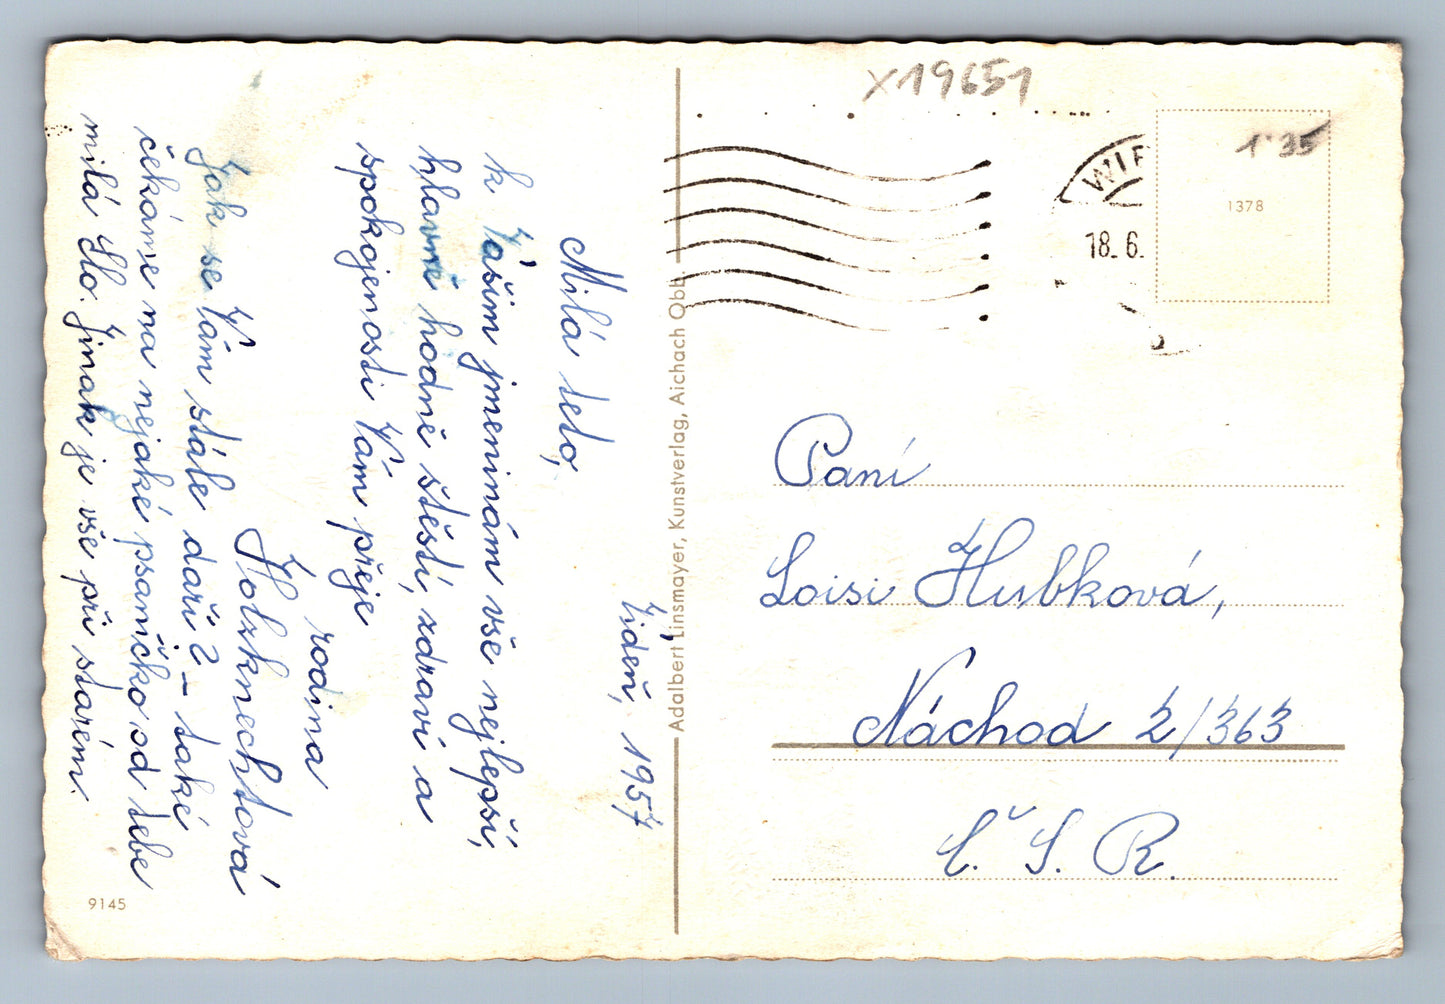 x19651
WIE
18.6.
1'35
1378
Vídeň, 1957
Milá teto,
k Vašim jmeninám vše nejlepší,
hlavně hodně štěstí, zdraví a
spokojenosti Vám přeje
rodina
Holzknechtová
Jak se Vám stále daří? – také
čekáme na nějaké psaníčko od tebe
milá Ilo. Jinak je vše při starém.
9145
Adalbert Linsmayer, Kunstverlag, Aichach Obb.
Paní
Loisi Hubková,
Náchod 2/363
Č. S. R.